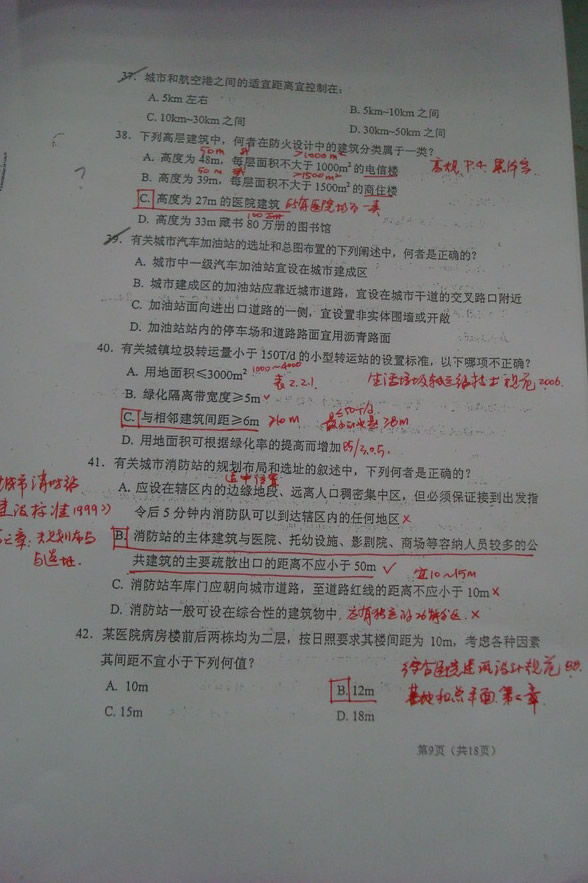 37. 城市和航空港之间的适宜距离宜控制在:
A. 5km 左右
B. 5km~10km 之间
C. 10km~30km 之间
D. 30km~50km 之间
38. 下列高层建筑中，何者在防火设计中的建筑分类属于一类?
50m 或 >1000m²
A. 高度为 48m，每层面积不大于 1000m² 的电信楼
高规 P.4
50m 或 >1500m²
B. 高度为 39m，每层面积不大于 1500m² 的商住楼
C. 高度为 27m 的医院建筑 所有医院均为一类
100万册
D. 高度为 33m 藏书 80 万册的图书馆
39. 有关城市汽车加油站的选址和总图布置的下列阐述中，何者是正确的?
A. 城市中一级汽车加油站宜设在城市建成区
B. 城市建成区的加油站应靠近城市道路，宜设在城市干道的交叉路口附近
C. 加油站面向进出口道路的一侧，宜设置非实体围墙或开敞
D. 加油站站内的停车场和道路路面宜用沥青路面
40. 有关城镇垃圾转运量小于 150T/d 的小型转运站的设置标准，以下哪项不正确?
A. 用地面积≤3000m² 1000~4000
表 2.2.1. 生活垃圾转运站技术规范 2006.
B. 绿化隔离带宽度≥5m ✓
≤50T/d
C. 与相邻建筑间距≥6m ≥10m ≥8m
D. 用地面积可根据绿化率的提高而增加
41. 有关城市消防站的规划布局和选址的叙述中，下列何者是正确的?
适中位置
A. 应设在辖区内的边缘地段、远离人口稠密集中区，但必须保证接到出发指
令后 5 分钟内消防队可以到达辖区内的任何地区 ×
城市消防站
建设标准 1999》
B. 消防站的主体建筑与医院、托幼设施、影剧院、商场等容纳人员较多的公
共建筑的主要疏散出口的距离不应小于 50m ✓
二章. 规划布局
与选址.
宜 10~15m
C. 消防站车库门应朝向城市道路，至道路红线的距离不应小于 10m ×
D. 消防站一般可设在综合性的建筑物中. 应有独立的功能分区. ×
42. 某医院病房楼前后两栋均为二层，按日照要求其楼间距为 10m，考虑各种因素
其间距不宜小于下列何值?
综合医院建筑设计规范 88.
A. 10m
B. 12m
基地和总平面. 第二章.
C. 15m
D. 18m
第9页（共18页）